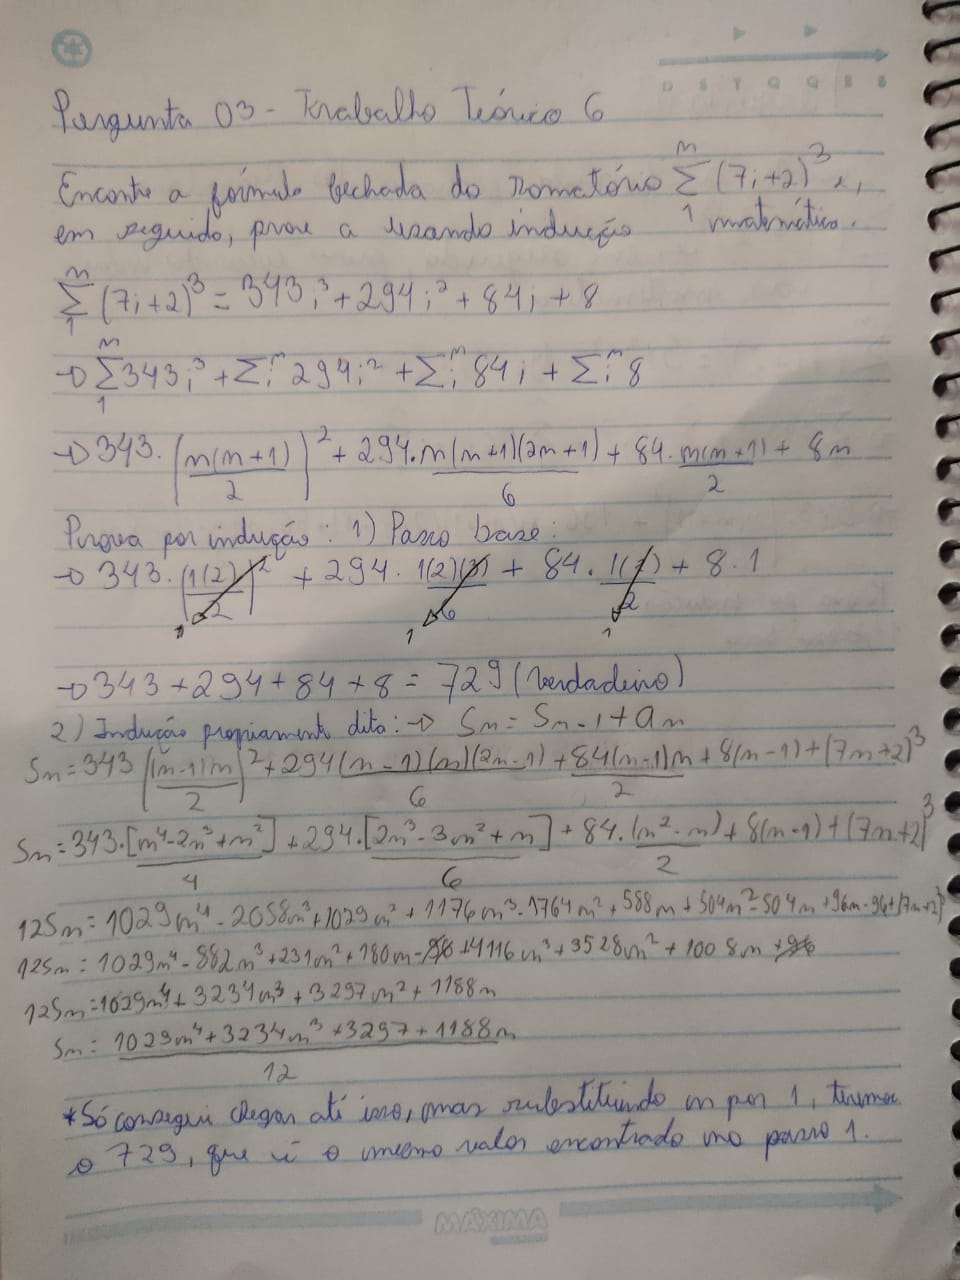 D S T Q Q S S
Pergunta 03 - Trabalho Teórico 6
Encontre a fórmula fechada do somatório Σ₁ⁿ (7i+2)³ e,
em seguida, prove a usando indução matemática.
Σ₁ⁿ (7i+2)³ = 343i³ + 294i² + 84i + 8
→ Σ₁ⁿ 343i³ + Σᵢⁿ 294i² + Σᵢⁿ 84i + Σᵢⁿ 8
→ 343.(n(n+1)/2)² + 294.n(n+1)(2n+1)/6 + 84.n(n+1)/2 + 8n
Prova por indução: 1) Passo base:
→ 343.(1(2)/2)² + 294.1(2)(3)/6 + 84.1(2)/2 + 8.1
1 1 1
→ 343 + 294 + 84 + 8 = 729 (Verdadeiro)
2) Indução propriamente dita: → Sn = Sn-1 + an
Sn = 343((n-1)n/2)² + 294(n-1)(n)(2n-1)/6 + 84(n-1)n/2 + 8(n-1) + (7n+2)³
Sn = 343.[n⁴-2n³+n²]/4 + 294.[2n³-3n²+n]/6 + 84.(n²-n)/2 + 8(n-1) + (7n+2)³
12Sn = 1029n⁴ - 2058n³ + 1029n² + 1176n³ - 1764n² + 588n + 504n² - 504n + 96n - 96 + (7n+2)³
12Sn = 1029n⁴ - 882n³ + 231n² + 180n - 96 + 4116n³ + 3528n² + 1008n + 96
12Sn = 1029n⁴ + 3234n³ + 3297n² + 1188n
Sn = 1029n⁴ + 3234n³ + 3297 + 1188n/12
*Só consegui chegar até isso, mas substituindo n por 1, temos
o 729, que é o mesmo valor encontrado no passo 1.
MÁXIMA